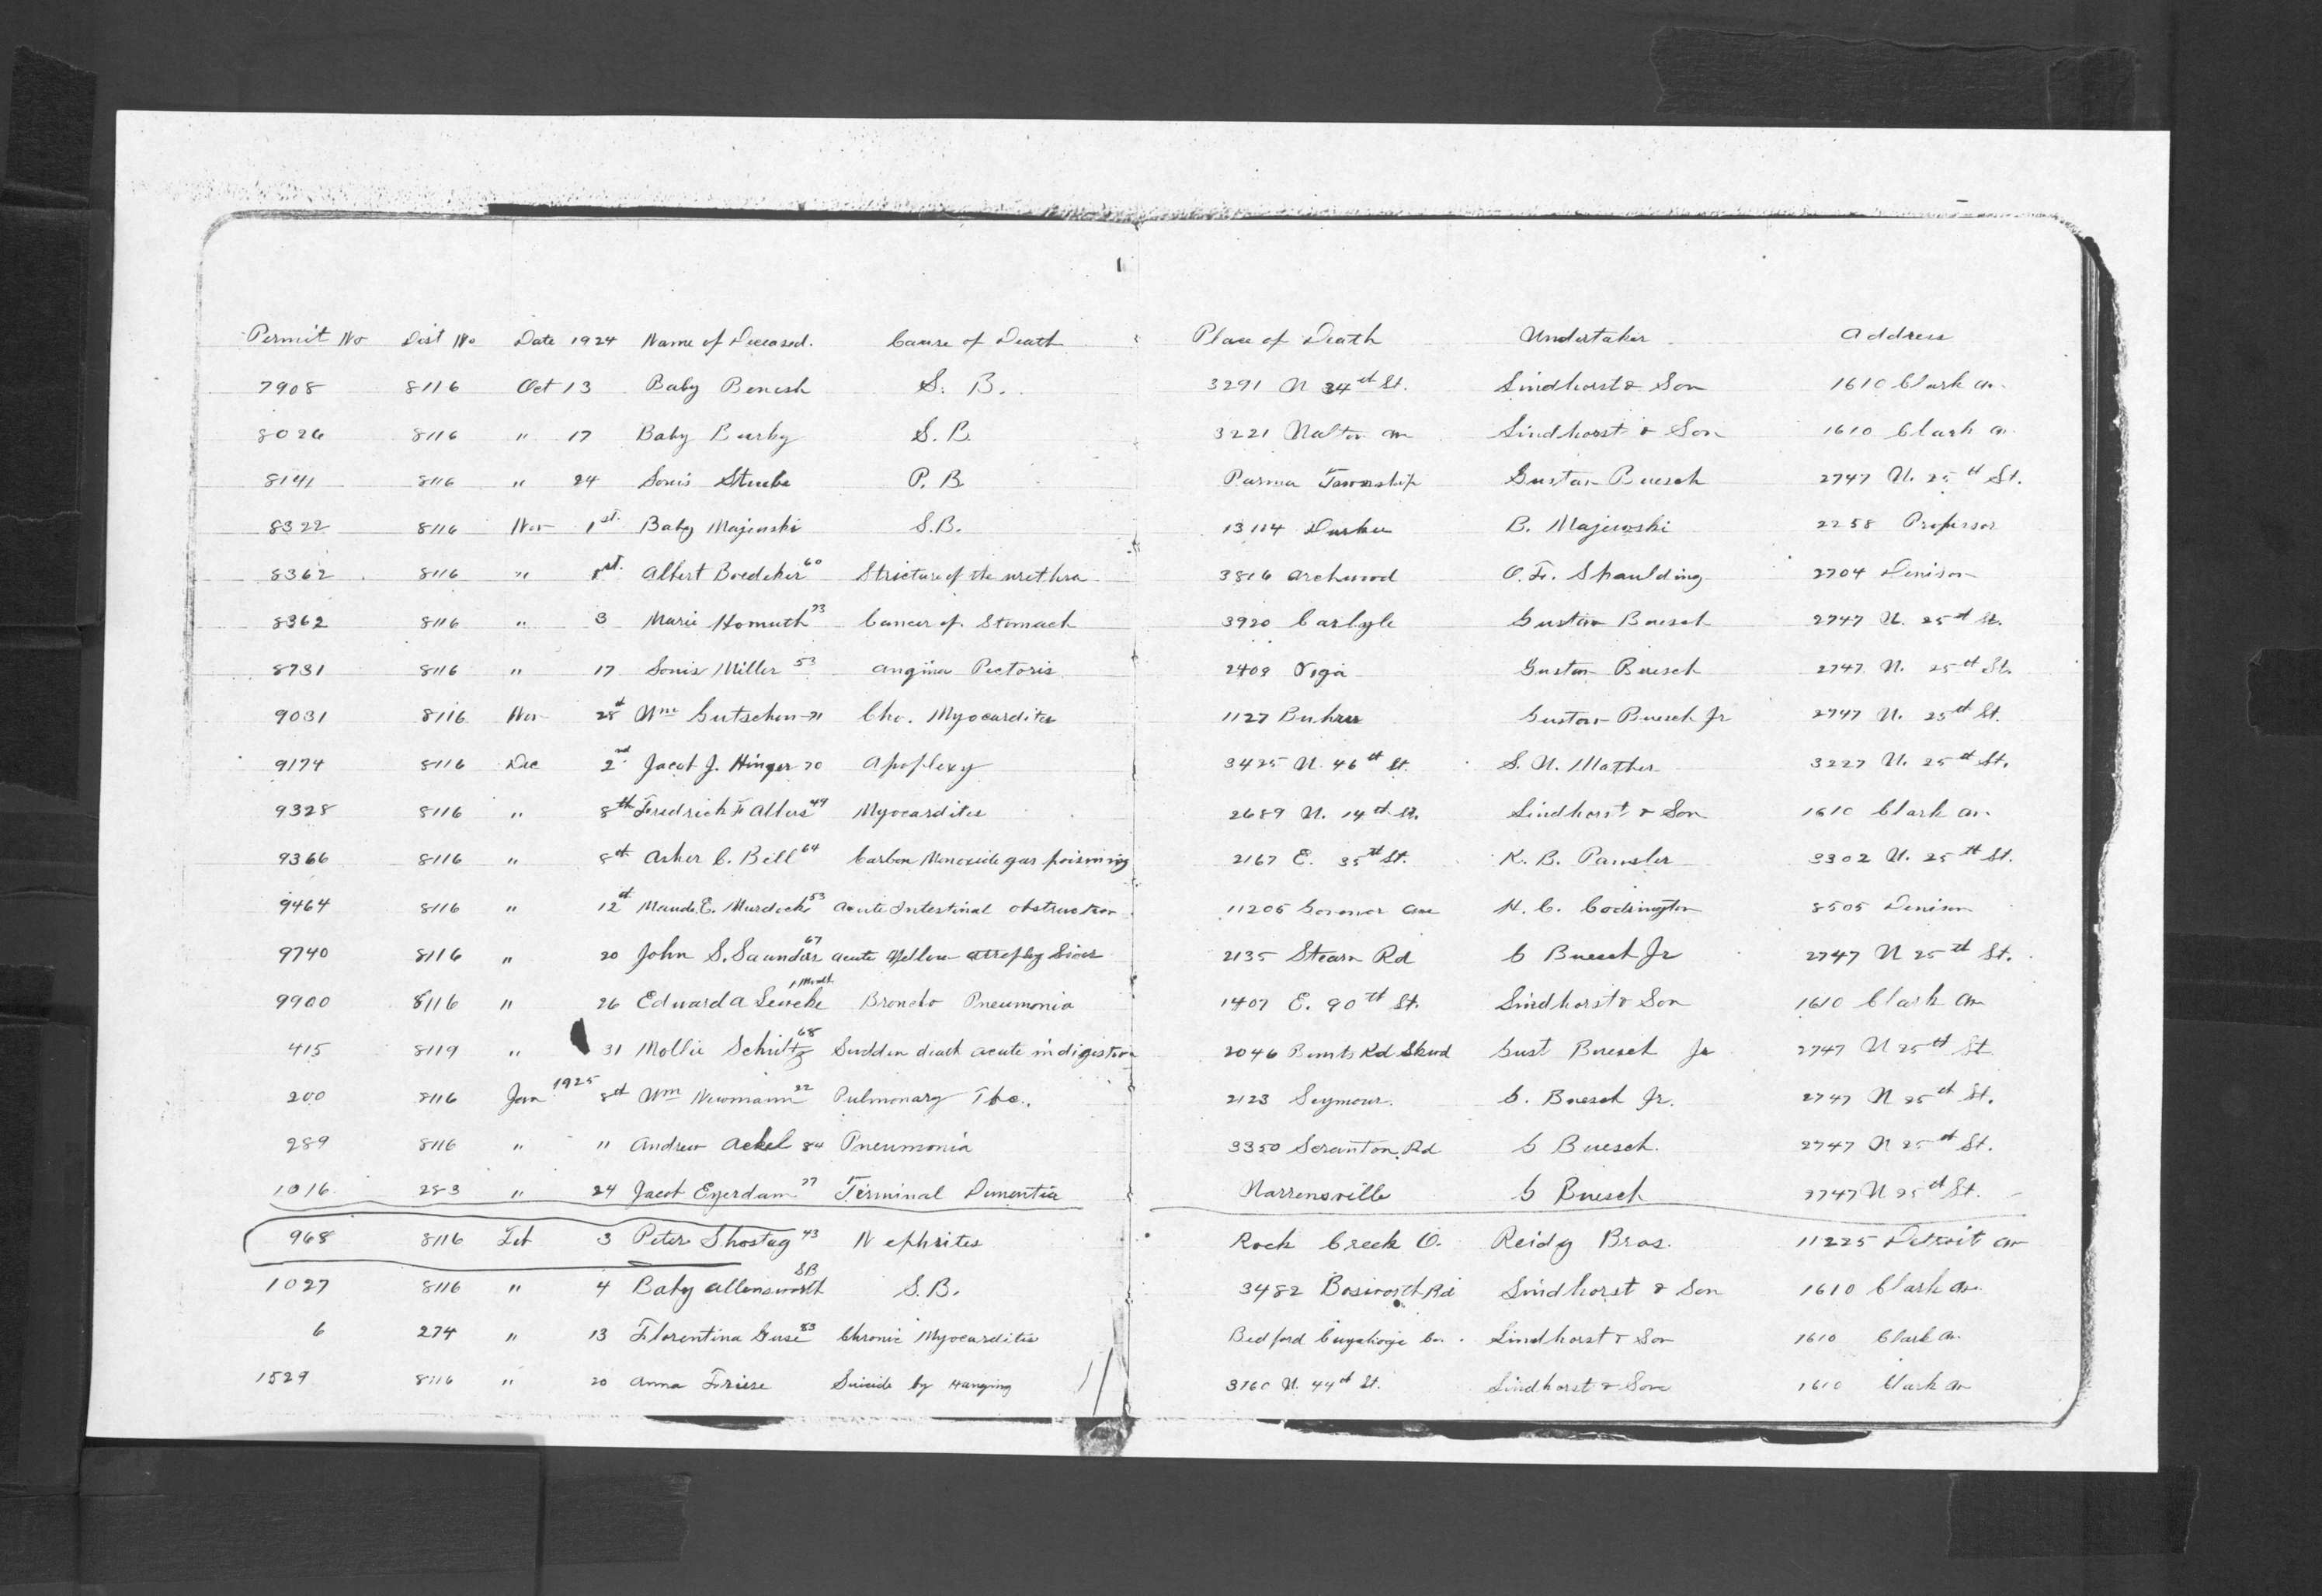 Permit No Dist No Date 1924 Name of Deceased. Cause of Death Place of Death Undertaker Address
7908 8116 Oct 13 Baby Benesh S. B. 3291 W 34th St. Lindhorst & Son 1610 Clark av.
8026 8116 " 17 Baby S. B. 3221 Walton av Lindhorst & Son 1610 Clark av
8141 8116 " 24 Louis Stuebe P. B. Parma Township Gustav Buesch 2747 W. 25th St.
8322 8116 Nov 1st. Baby Majewski S.B. 13114 B. Majewski 2258 Professor
8362 8116 " 1st. Albert Boedeker 60 Stricture of the urethra 3816 Archwood O. F. Spaulding 2704 Denison
8362 8116 " 3 Marie Homuth 73 Cancer of Stomach 3920 Carlyle Gustav Buesch 2747 W. 25th St.
8731 8116 " 17 Louis Miller 53 Angina Pectoris 2409 Gustav Buesch 2747 W. 25th St.
9031 8116 Nov 28th Wm 71 Cho. Myocardites 1127 Buhrer Gustav Buesch Jr 2747 W. 25th St.
9174 8116 Dec 2nd Jacob J. Hinger 70 Apoplexy 3425 W. 46th St. S. W. Mather 3227 W. 25th St.
9328 8116 " 8th Fredrich F Allers 49 Myocardites 2689 W. 14th St. Lindhorst & Son 1610 Clark av.
9366 8116 " 8th Asher C. Bell 64 Carbon Monoxide gas poisoning 2167 E. 35th St. K. B. 3302 W. 25th St.
9464 8116 " 12th Maude E. Murdock 53 Acute Intestinal obstruction 11206 Govenor ave H. C. Codrington 8505 Denison
9740 8116 " 20 John S. Saunders 67 acute Yellow atrophy Liver 2135 Stearn Rd G Buesch Jr 2747 W 25th St.
9900 8116 " 26 Edward A 1 Month Broncho Pneumonia 1407 E. 90th St. Lindhorst & Son 1610 Clark av
415 8119 " 31 Mollie Schultz 68 Sudden death acute indigestion 2046 Rd Gust Buesch Jr 2747 W 25th St
200 8116 Jan 1925 8th Wm Newmann 22 Pulmonary Tbc. 2123 Seymour. G. Buesch Jr. 2747 W 25th St.
289 8116 " " Andrew Ackel 84 Pneumonia 3350 Scranton Rd G Buesch. 2747 W 25th St.
1016 283 " 24 Jacob Eyerdam 77 Terminal Dementia Warrensville G Buesch 2747 W 25th St.
968 8116 Feb 3 Peter Shostag 43 Nephrites Rock Creek O. Reidy Bros. 11225 Detroit av
1027 8116 " 4 Baby Allensworth SB S.B. 3482 Bosworth Rd Lindhorst & Son 1610 Clark av.
6 274 " 13 Florentina Guse 83 Chronic Myocarditis Bedford Cuyahoga Co. Lindhorst & Son 1610 Clark av.
1529 8116 " 20 Anna Friese Suicide by Hanging 3160 W. 44th St. Lindhorst & Son 1610 Clark av